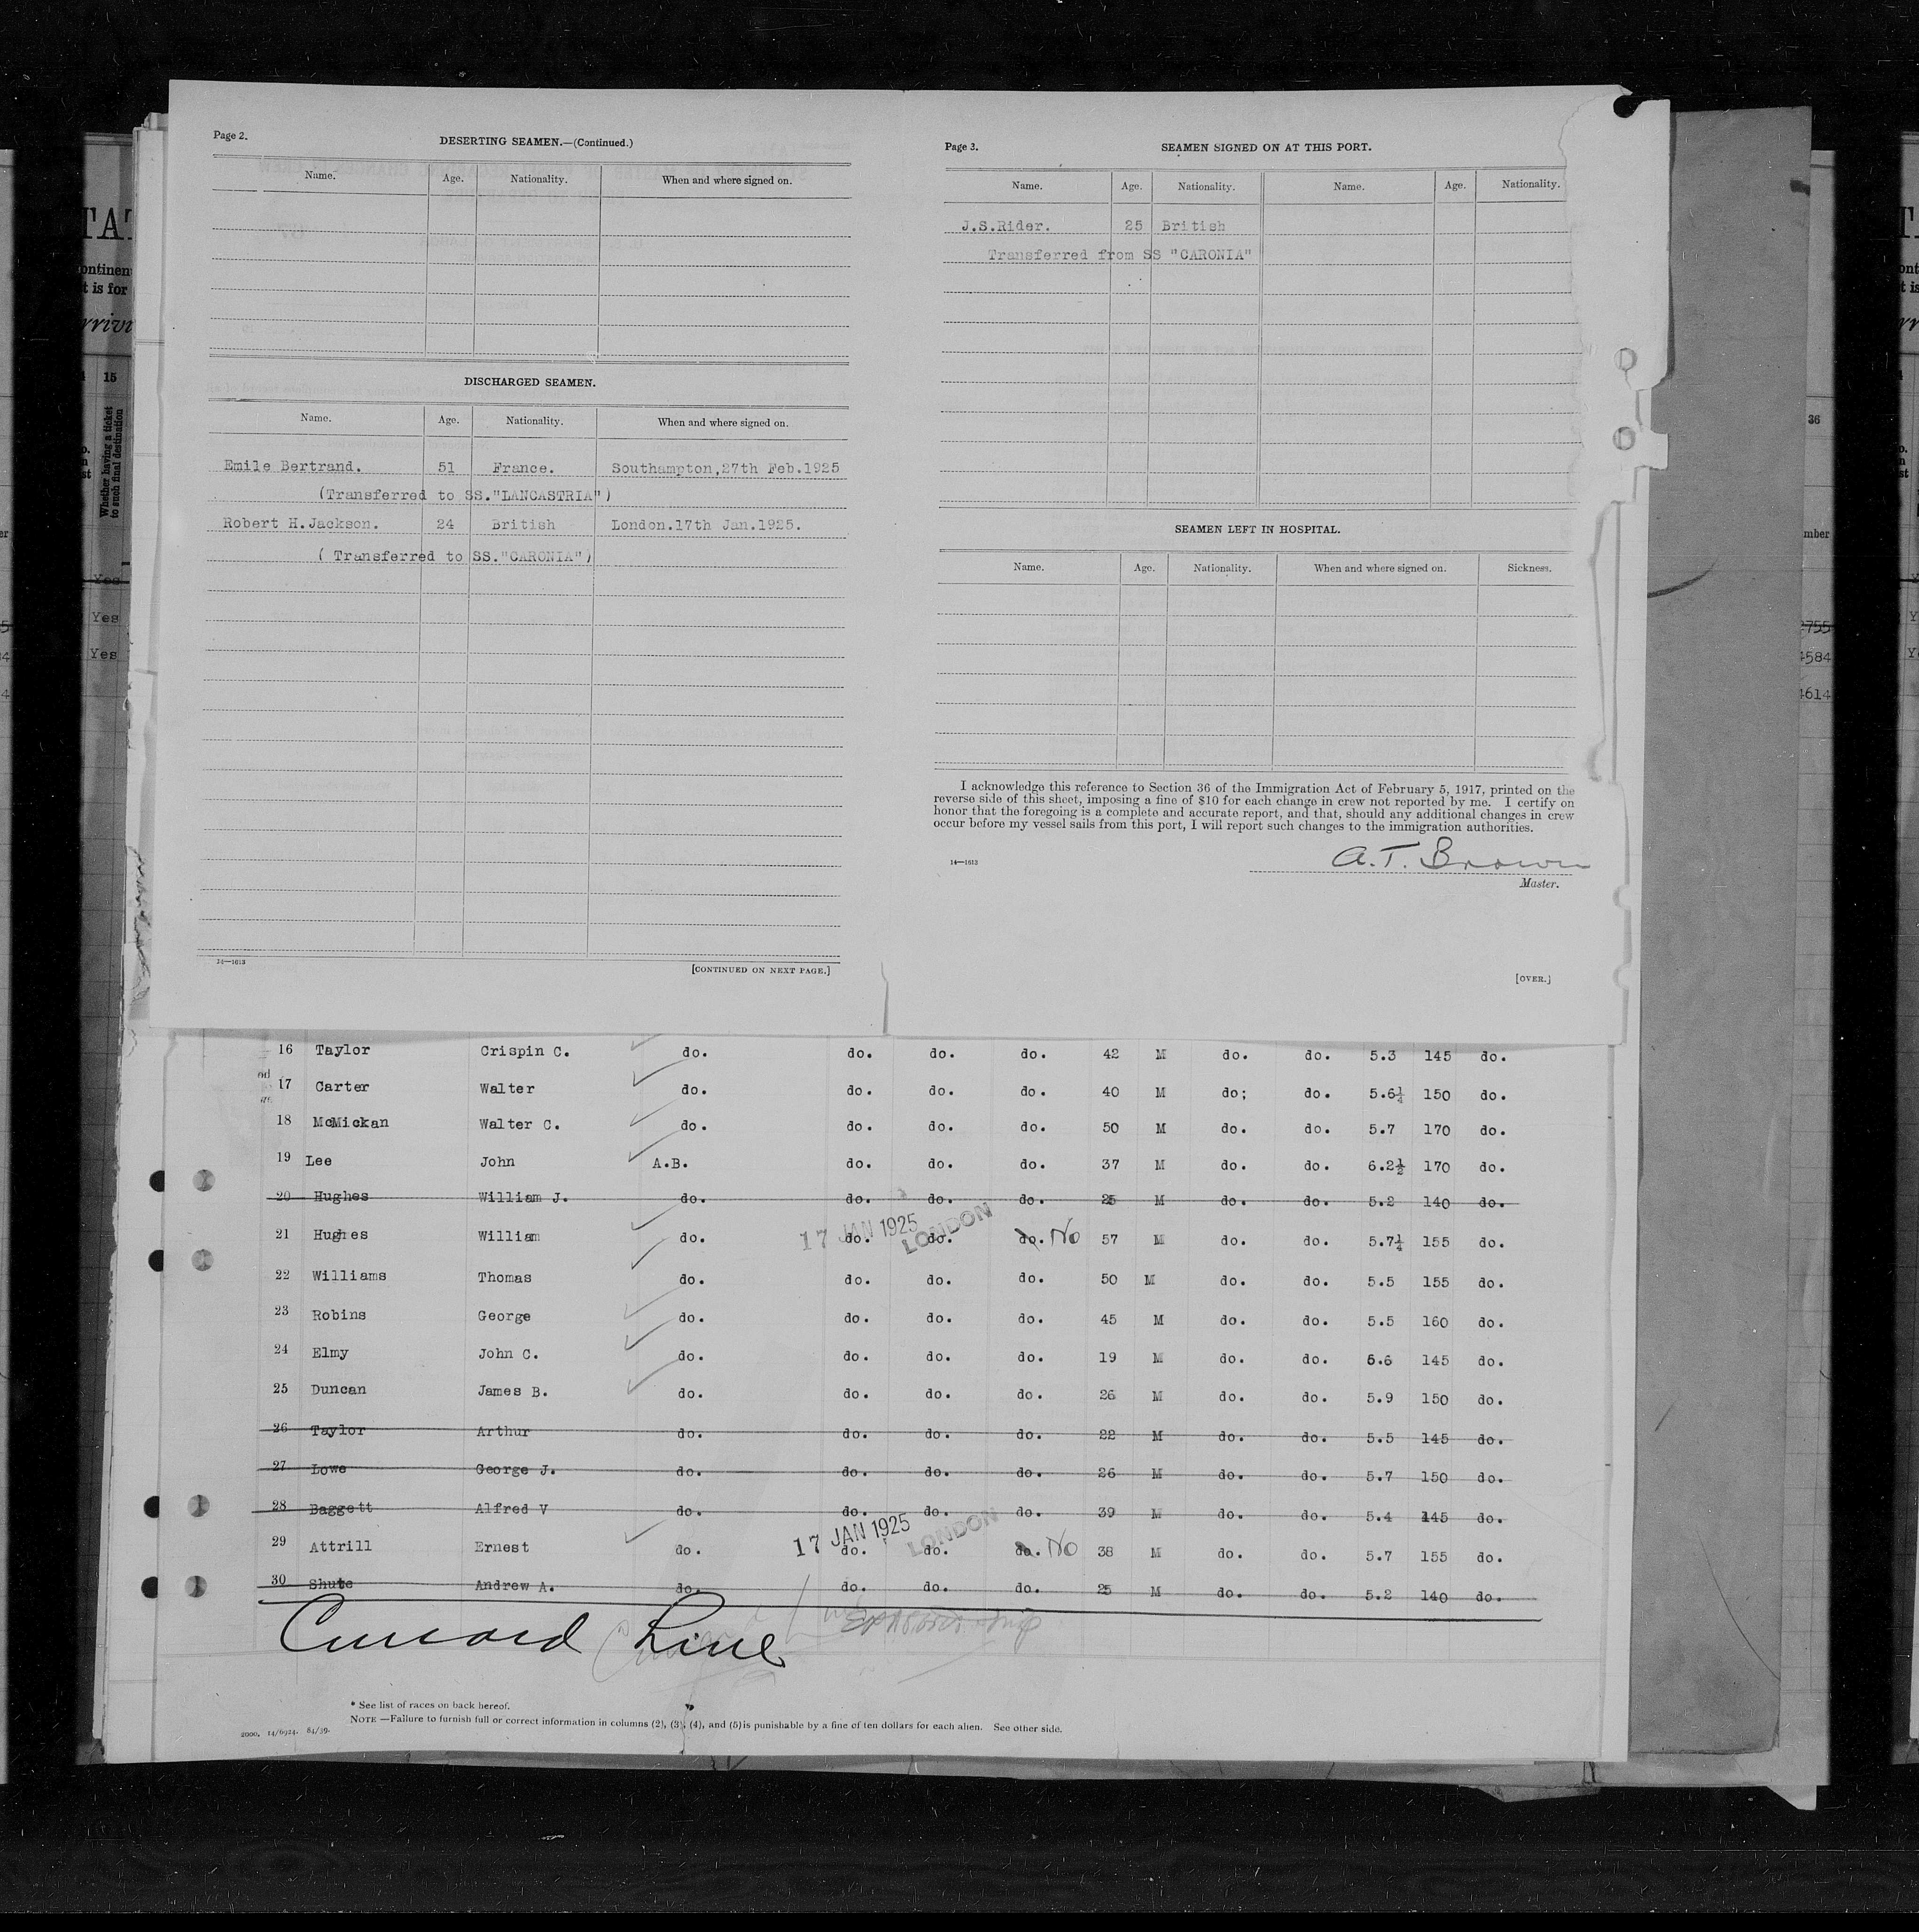 Page 2.
DESERTING SEAMEN.—(Continued.)
Name. Age. Nationality. When and where signed on.
DISCHARGED SEAMEN.
Name. Age. Nationality. When and where signed on.
Emile Bertrand. 51 France. Southampton,27th Feb.1925
(Transferred to SS."LANCASTRIA")
Robert H.Jackson. 24 British London.17th Jan.1925.
( Transferred to SS."CARONIA")
14—1613
[CONTINUED ON NEXT PAGE.]
Page 3.
SEAMEN SIGNED ON AT THIS PORT.
Name. Age. Nationality. Name. Age. Nationality.
J.S.Rider. 25 British
Transferred from SS "CARONIA"
SEAMEN LEFT IN HOSPITAL.
Name. Age. Nationality. When and where signed on. Sickness.
I acknowledge this reference to Section 36 of the Immigration Act of February 5, 1917, printed on the
reverse side of this sheet, imposing a fine of $10 for each change in crew not reported by me. I certify on
honor that the foregoing is a complete and accurate report, and that, should any additional changes in crew
occur before my vessel sails from this port, I will report such changes to the immigration authorities.
14—1613
A.T. Brown
Master.
[OVER.]
16 Taylor Crispin C. do. do. do. do. 42 M do. do. 5.3 145 do.
17 Carter Walter do. do. do. do. 40 M do; do. 5.6¼ 150 do.
18 McMickan Walter C. do. do. do. do. 50 M do. do. 5.7 170 do.
19 Lee John A.B. do. do. do. 37 M do. do. 6.2½ 170 do.
20 Hughes William J. do. do. do. do. 25 M do. do. 5.2 140 do.
17 JAN 1925 LONDON
21 Hughes William do. do. do. do. No 57 M do. do. 5.7¼ 155 do.
22 Williams Thomas do. do. do. do. 50 M do. do. 5.5 155 do.
23 Robins George do. do. do. do. 45 M do. do. 5.5 160 do.
24 Elmy John C. do. do. do. do. 19 M do. do. 5.6 145 do.
25 Duncan James B. do. do. do. do. 26 M do. do. 5.9 150 do.
26 Taylor Arthur do. do. do. do. 22 M do. do. 5.5 145 do.
27 Lowe George J. do. do. do. do. 26 M do. do. 5.7 150 do.
28 Baggett Alfred V do. do. do. do. 39 M do. do. 5.4 145 do.
17 JAN 1925 LONDON
29 Attrill Ernest do. do. do. do. No 38 M do. do. 5.7 155 do.
30 Shute Andrew A. do. do. do. do. 25 M do. do. 5.2 140 do.
Cunard Line
* See list of races on back hereof.
NOTE —Failure to furnish full or correct information in columns (2), (3), (4), and (5) is punishable by a fine of ten dollars for each alien. See other side.
2000. 14/6924. 84/39.
15
Whether having a ticket
to such final destination
Yes
Yes
Yes
36
2755
4584
4614